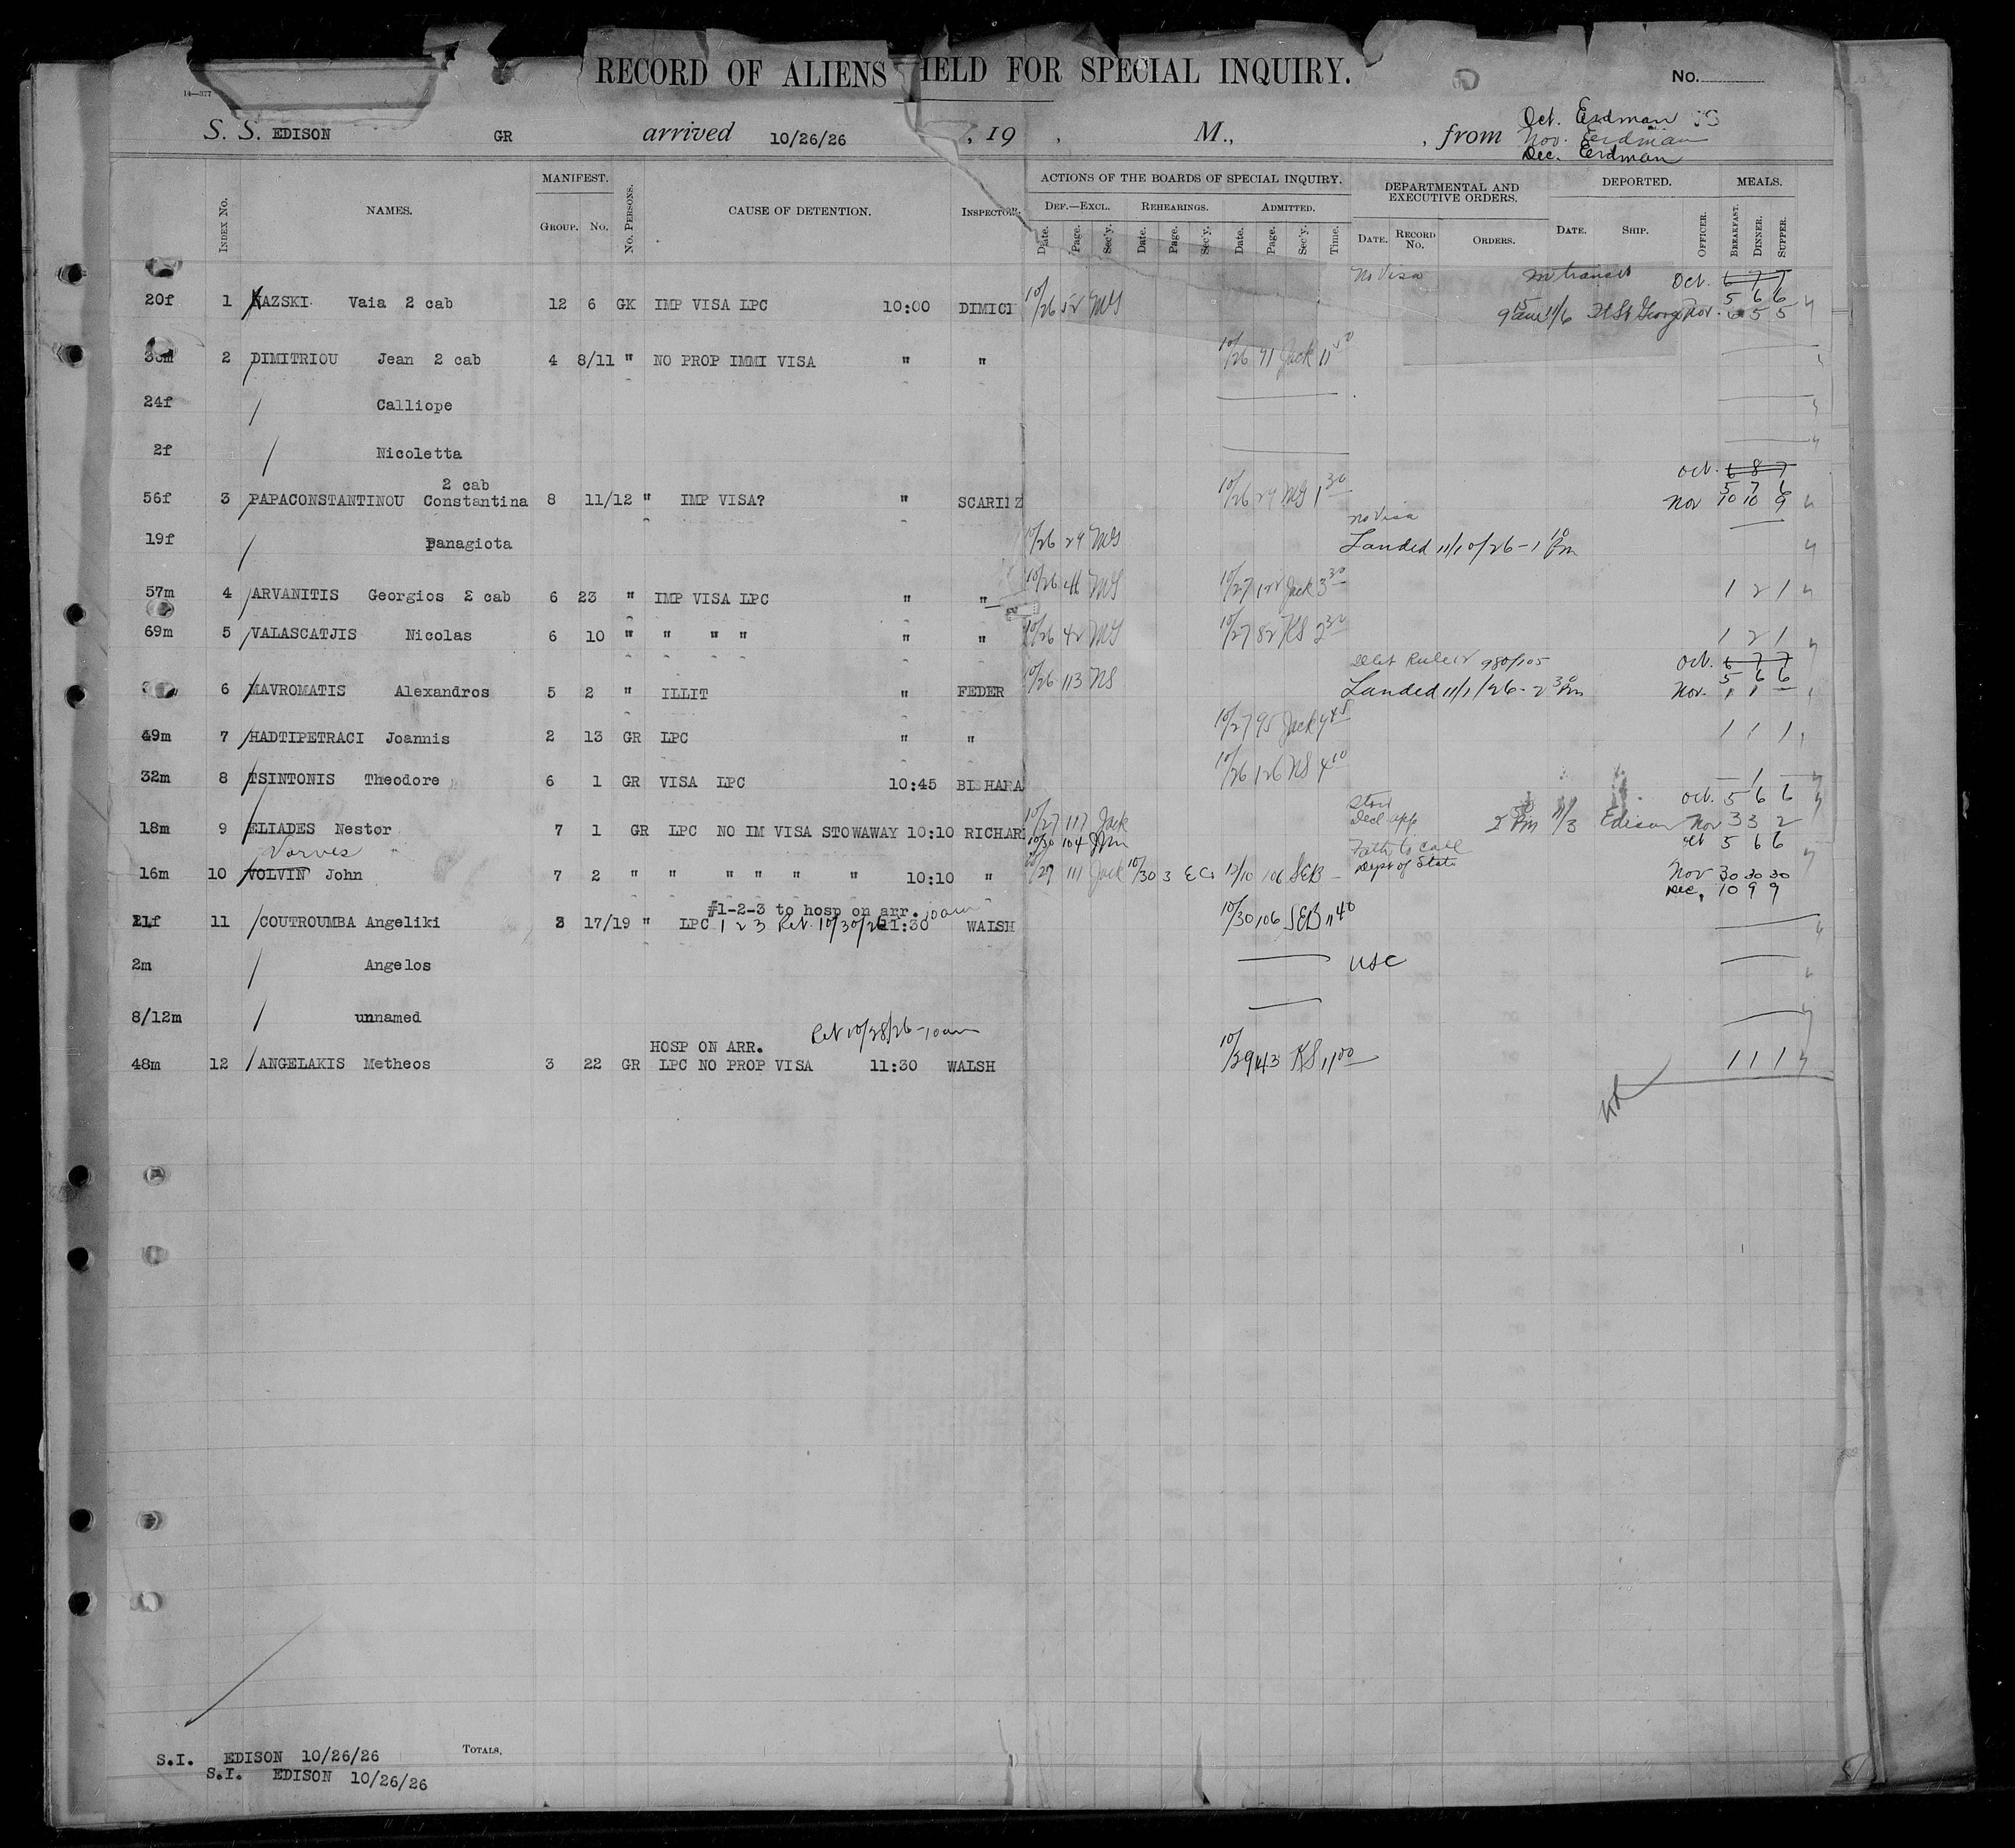 RECORD OF ALIENS HELD FOR SPECIAL INQUIRY.
No.
14—377
S. S. EDISON GR arrived 10/26/26 , 19 , M., , from Oct. Erdman
Nov. Eerdman
Dec. Eerdman
INDEX No. NAMES. MANIFEST. GROUP. No. No. PERSONS. CAUSE OF DETENTION. INSPECTOR. ACTIONS OF THE BOARDS OF SPECIAL INQUIRY. DEPARTMENTAL AND EXECUTIVE ORDERS. DEPORTED. MEALS.
DEF.—EXCL. REHEARINGS. ADMITTED.
Date. Page. Sec'y. Date. Page. Sec'y. Date. Page. Sec'y. Time. DATE. RECORD No. ORDERS. DATE. SHIP. OFFICER. BREAKFAST. DINNER. SUPPER.
No Visa Oct. 6 7 7
5 6 6
20f 1 KAZSKI Vaia 2 cab 12 6 GK IMP VISA LPC 10:00 DIMICI 10/26 52 MG 11/6 Nov. 6 5 5
2 DIMITRIOU Jean 2 cab 4 8/11 " NO PROP IMMI VISA " " 10/26 71 Jack 11
24f Calliope
2f Nicoletta
Oct. 6 8 7
2 cab 5 7 6
56f 3 PAPACONSTANTINOU Constantina 8 11/12 " IMP VISA? " SCARILZ 10/26 29 MG 1 30 Nov 10 10 9
No Visa
19f Panagiota 10/26 29 MG Landed 11/10/26 - 1 10 Pm
57m 4 ARVANITIS Georgios 2 cab 6 23 " IMP VISA LPC " " 10/26 46 MG 10/27 122 Jack 3 30 1 2 1
69m 5 VALASCATJIS Nicolas 6 10 " " " " " " 10/26 42 MG 10/27 82 KS 2 30 1 2 1
980/105 Oct. 6 7 7
5 6 6
6 MAVROMATIS Alexandros 5 2 " ILLIT " FEDER 10/26 113 NS Landed 11/1/26 - 2 30 Pm Nov. 1 1 —
49m 7 HADTIPETRACI Joannis 2 13 GR LPC " " 10/27 95 Jack 4 45 1 1 1
32m 8 TSINTONIS Theodore 6 1 GR VISA LPC 10:45 BISHARA 10/26 126 NS 4 10 — 1 —
Oct. 5 6 6
18m 9 ELIADES Nestor 7 1 GR LPC NO IM VISA STOWAWAY 10:10 RICHAR 10/27 117 Jack 2 Pm 11/3 Edison Nov 3 3 2
10/30 104
Vorves Oct 5 6 6
16m 10 VOLVIN John 7 2 " " " " " " 10:10 " 10/27 111 Jack 10/30 3 EC 12/10 106 SEB — Dept of State Nov 30 30 30
Dec. 10 9 9
#1-2-3 to hosp on arr. 10am
21f 11 COUTROUMBA Angeliki 3 17/19 " LPC 1 2 3 Ret 10/30/26 11:30 WALSH 10/30 106 SEB 11 40
2m Angelos USC
8/12m unnamed
Ret 10/28/26 - 10am
HOSP ON ARR.
48m 12 ANGELAKIS Metheos 3 22 GR LPC NO PROP VISA 11:30 WALSH 10/29 43 KS 11 00 1 1 1
TOTALS,
S.I. EDISON 10/26/26
S.I. EDISON 10/26/26